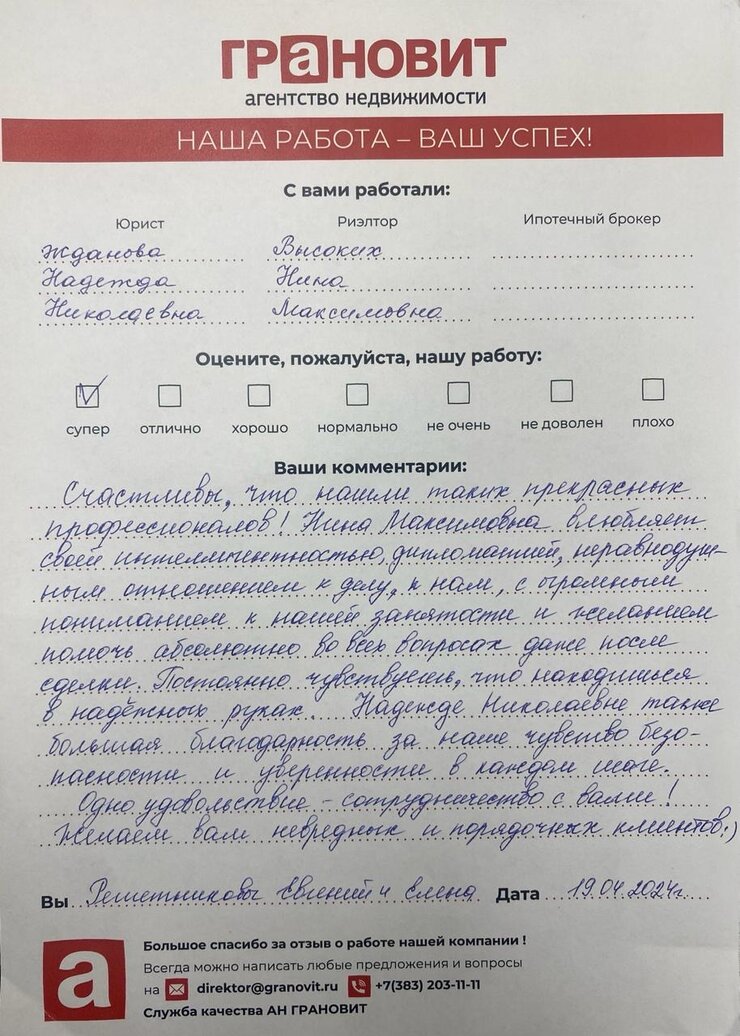 ГРаНОВИТ
агентство недвижимости
НАША РАБОТА – ВАШ УСПЕХ!
С вами работали:
Юрист Риэлтор Ипотечный брокер
Жданова Высоких
Надежда Нина
Николаевна Максимовна
Оцените, пожалуйста, нашу работу:
супер отлично хорошо нормально не очень не доволен плохо
Ваши комментарии:
Счастливы, что нашли таких прекрасных
профессионалов! Нина Максимовна влюбляет
своей интеллигентностью, дипломатией, неравнодуш-
ным отношением к делу, к нам, с огромным
пониманием к нашей занятости и желанием
помочь абсолютно во всех вопросах даже после
сделки. Постоянно чувствуешь, что находишься
в надёжных руках. Надежде Николаевне также
большая благодарность за наше чувство безо-
пасности и уверенности в каждом шаге.
Одно удовольствие – сотрудничество с вами!
Желаем вам невредных и порядочных клиентов:)
Вы Решетниковы Евгений и Елена Дата 19.04.2024г.
а
Большое спасибо за отзыв о работе нашей компании !
Всегда можно написать любые предложения и вопросы
на direktor@granovit.ru +7(383) 203-11-11
Служба качества АН ГРАНОВИТ